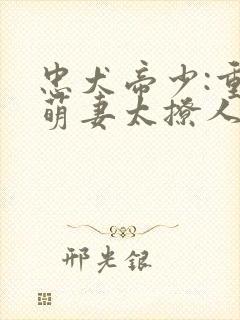 忠犬帝少:重
萌妻太撩人
邢光银